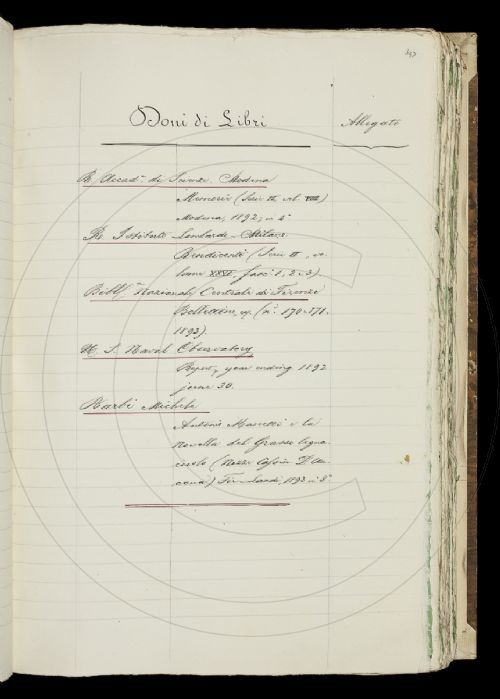 Doni di Libri
Allegati
R. Accad. di Scienze. Modena
Memorie (Serie II, vol. VIII)
Modena, 1892, in 4°
R. Istituto Lombardo. Milano
Rendiconti (Serie II, vo-
lume XXVI, fasc. 1, 2 e 3).
Bibl. Nazionale Centrale di Firenze
Bollettino, (n. 170 e 171.
1893).
U. S. Naval Observatory
Report, year ending 1892
june 30.
Barbi Michele
Antonio Manetti e la
Novella del Grasso legna-
iuolo (Nozze Cassin D'An-
cona) Landi, 1893 in 8°